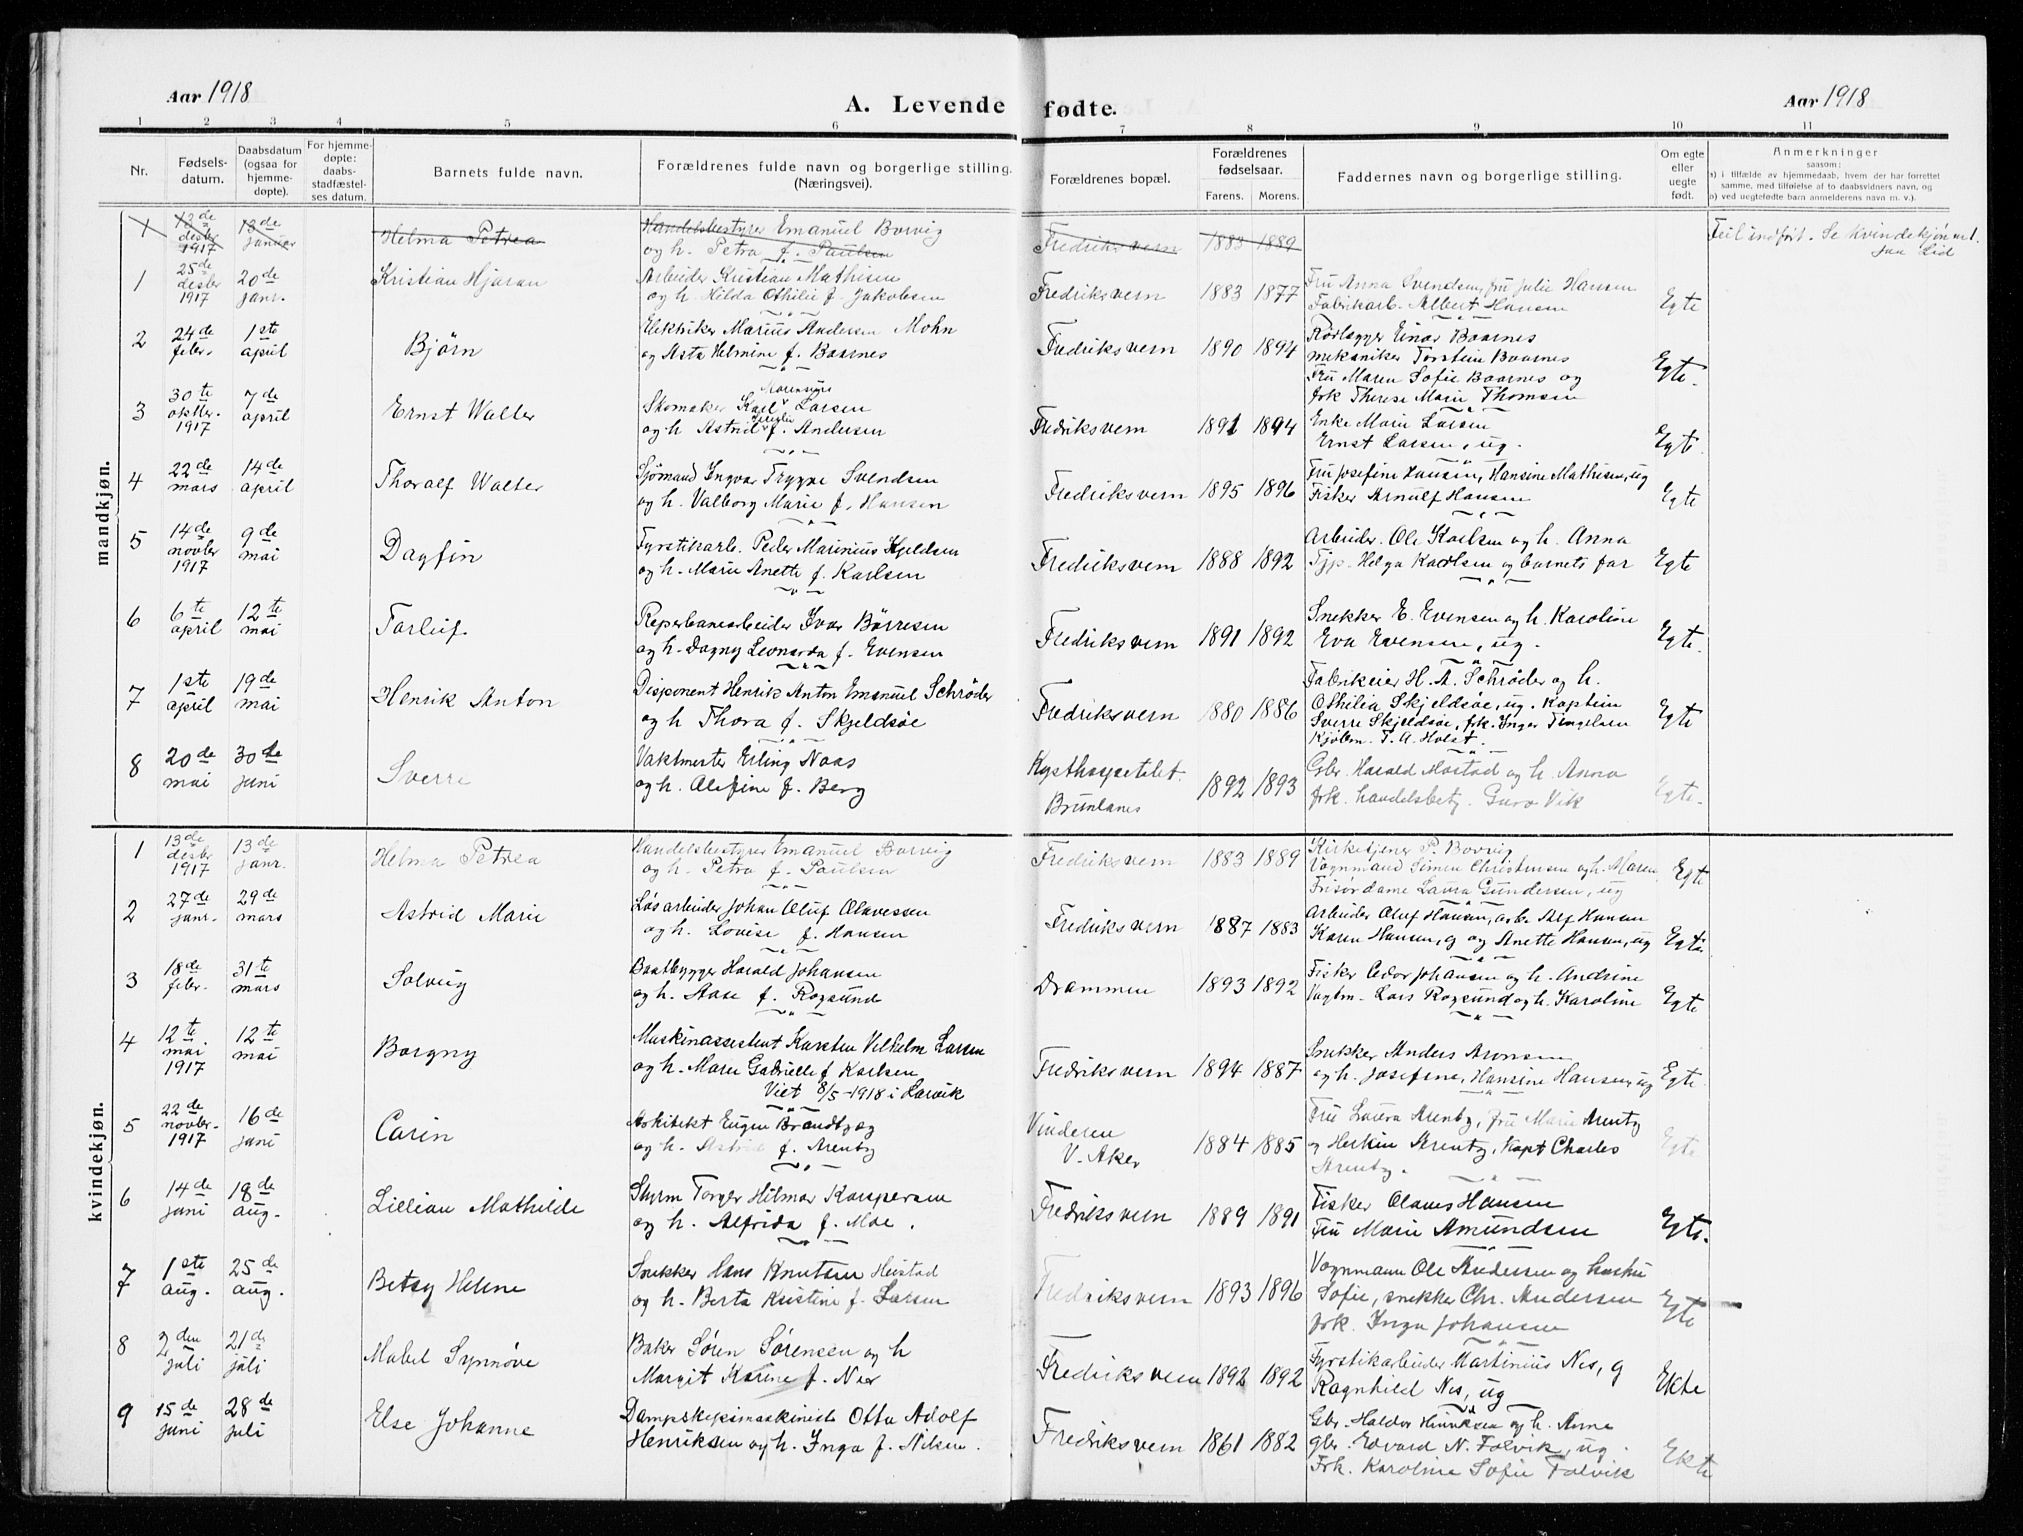 Aar 1918
A. Levende fødte.
Aar 1918
1 2 3 4 5 6 7 8 9 10 11
Nr.
Fødsels-
datum.
Daabsdatum
(ogsaa for
hjemme-
døpte).
For hjemme-
døpte:
daabs-
stadfæstel-
ses datum.
Barnets fulde navn.
Forældrenes fulde navn og borgerlige stilling.
(Næringsvei).
Forældrenes bopæl.
Forældrenes
fødselsaar.
Farens. Morens.
Faddernes navn og borgerlige stilling.
Om egte
eller
uegte
født.
Anmerkninger
saasom:
a) i tilfælde av hjemmedaab, hvem der har forrettet
samme, med tilføielse af to daabsvidners navn, og
b) ved uegtefødte barn anmelderens navn m. v.).
mandkjøn.
1 13de desbr 1917 13de januar Helma Petrea
Handelsbestyrer Emanuel Borvig
og h. Petra f. Paulsen
Fredriksvern 1883 1889
Feil indført. Se kvindekjøn nr 1.
1 25de desbr 1917 20de janr. Kristian Hjaran
Arbeider Kristian Mathisen
og h. Hilda Othilie f. Jakobsen
Fredriksvern 1883 1877
Fru Anna Svendsen, fru Julie Hansen
Fabrikarb. Albert Hansen
Egte
2 24de febr. 1ste april Bjørn
Elektriker Marius Andersen Mohn
og Asta Helmine f. Baarnes
Fredriksvern 1890 1894
Rørlægger Einar Baarnes
mekaniker Torstein Baarnes
Fru Maren Sofie Baarnes og
frk Therese Marie Thomsen
Egte.
3 30te oktbr. 1917 7de april Ernst Walter
Skomaker Karl Larsen
og h Astrid f. Andersen
Fredriksvern 1891 1894
Enke Marie Larsen
Ernst Larsen, ug.
Egte
4 22de mars 14de april Thoralf Walter
Sjømand Ingvar Trygve Svendsen
og h. Valborg Marie f. Hansen
Fredriksvern 1895 1896
Fru Josefine Hansen, Hansine Mathisen, ug
Fisker Arnulf Hansen
Egte
5 14de novbr 1917 9de mai Dagfin
Fyrstikarb. Peder Marinius Kjeldsen
og h. Marie Anette f. Karlsen
Fredriksvern 1888 1892
Arbeider. Ole Karlsen og h. Anna
Tjp. Helga Karlsen og barnets far
Egte
6 6te april 12te mai Torleif.
Reperbanearbeider Ivar Børresen
og h. Dagny Leonarda f. Evensen
Fredriksvern 1891 1892
Snekker E. Evensen og h. Karoline
Eva Evensen, ug.
Egte.
7 1ste april 19de mai Henrik Anton
Disponent Henrik Anton Emanuel Schrøder
og h Thora f. Skjeldsøe
Fredriksvern 1880 1886
Fabrikeier H. A. Schrøder og h.
Othilia Skjeldsøe, ug. Kaptein
Sverre Skjeldsøe, frk. Inger Tingelsen
Kjøbm. T. A. Holst.
Egte
8 20de mai 30de juni Sverre
Vaktmester Erling Naas
og h. Olefine f. Berg
Kysthospitalet.
Brunlanes
1892 1893
Gbr. Harald Mostad og h. Anna
frk. handelsbetj. Guro Vik
Egte.
kvindekjøn.
1 13de desbr 1917 13de janr. Helma Petrea
Handelsbestyrer Emanuel Borvig
og h. Petra f. Paulsen
Fredriksvern 1883 1889
Kirketjener P. Borvig
Vognmand Simen Christensen og h. Maren
Frisørdame Laura Gundersen, ug
Egte
2 27de janr. 29de mars Astrid Marie
Løsarbeider Johan Oluf Olavessen
og h. Lovise f. Hansen
Fredriksvern 1887 1883
Arbeider Oluf Hansen, arb. Alf Hansen
Karen Hansen, g og Anette Hansen, ug
Egte.
3 18de febr. 31te mars Solveig
Baatbygger Harald Johansen
og h. Aase f. Rogsund
Drammen 1893 1892
Fisker Peder Johansen og h. Andrine
Vagtm. Lars Rogsund og h. Karoline
Egte
4 12te. mai 1917 12te mai Borgny
Maskinassistent Karsten Vilhelm Larsen
og h. Maren Gabrielle f Karlsen
Viet 8/5-1918 i Larvik
Fredriksvern 1894 1887
Snekker Anders Aronsen
og h. Josefine, Hansine Hansen, ug
Egte
5 22de novbr. 1917 16de juni Carin
Arkitekt Eugen Brandtzæg
og h. Astrid f. Arentz
Vinderen
V. Aker
1884 1885
Fru Laura Arentz, fru Marie Arentz
og Herkin Arentz, Kapt Charles
Arentz.
Egte
6 14de juni 18de aug. Lillian Mathilde
Styrm Torger Hilmar Kaspersen
og h. Alfrida f. Moe.
Fredriksvern 1889 1891
Fisker Olaves Hansen
Fru Marie Amundsen
Egte.
7 1ste aug. 25de aug. Betsy Helene
Snekker Hans Knutsen Heistad
og h. Berta Kristine f. Larsen
Fredriksvern 1893 1896
Vognmann Ole Andersen og hustru
Sofie, snekker Chr. Andersen
frk. Inga Johansen
Egte
8 2den juli 21de juli Mabel Synnøve
Baker Søren Sørensen og h
Margit Karine f. Nær
Fredriksvern 1892 1892
Fyrstikarbeider Martinius Nes, g
Ragnhild Nes, ug
Ekte
9 15de juni 28de juli Else Johanne
Dampskipsmaskinist Otto Adolf
Henriksen og h. Inga f. Nilsen.
Fredriksvern 1861 1882
Gbr. Haldor Henriksen og h. Anne
gbr. Edvard N. Folvik, ug.
Frk. Karoline Sofie Folvik
Ekte